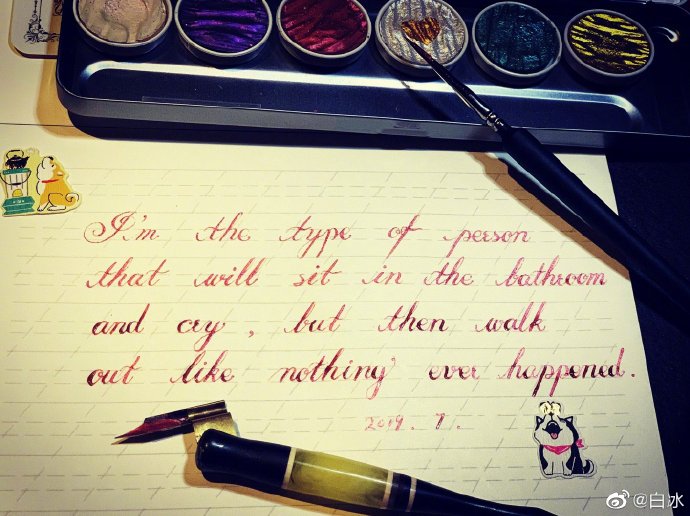 I'm the type of person
that will sit in the bathroom
and cry, but then walk
out like nothing ever happened.
2019. 7.
@白水